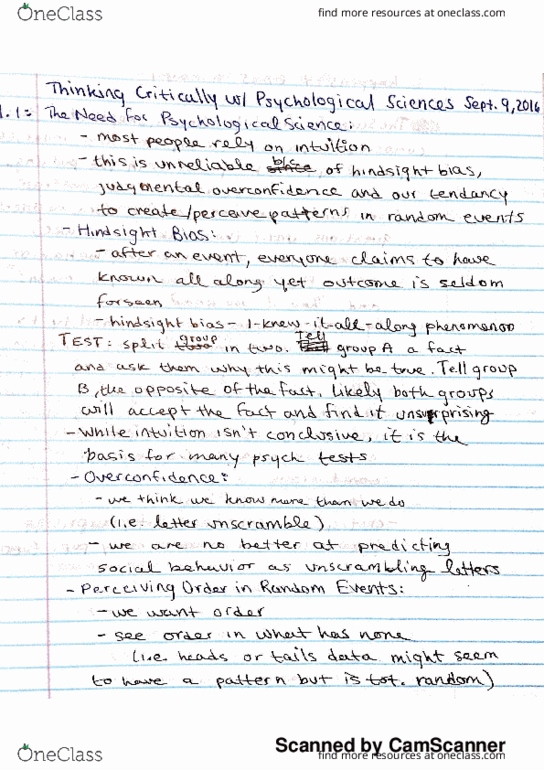 OneClass
find more resources at oneclass.com
Thinking Critically w/ Psychological Sciences Sept. 9, 2016
1.1: The Need For Psychological Science:
- most people rely on intuition
- this is unreliable b/c of hindsight bias,
judgmental overconfidence and our tendancy
to create/perceive patterns in random events
- Hindsight Bias:
- after an event, everyone claims to have
known all along yet outcome is seldom
forseen
- hindsight bias - I-knew-it-all-along phenomenon
TEST: split group in two. Tell group A a fact
and ask them why this might be true. Tell group
B, the opposite of the fact. Likely both groups
will accept the fact and find it unsurprising
- While intuition isn't conclusive, it is the
basis for many psych tests
- Overconfidence:
- we think we know more than we do
(i.e. letter unscramble)
- we are no better at predicting
social behavior as unscrambling letters
- Perceiving Order in Random Events:
- we want order
- see order in what has none
(i.e. heads or tails data might seem
to have a pattern but is tot. random)
Scanned by CamScanner
OneClass
find more resources at oneclass.com